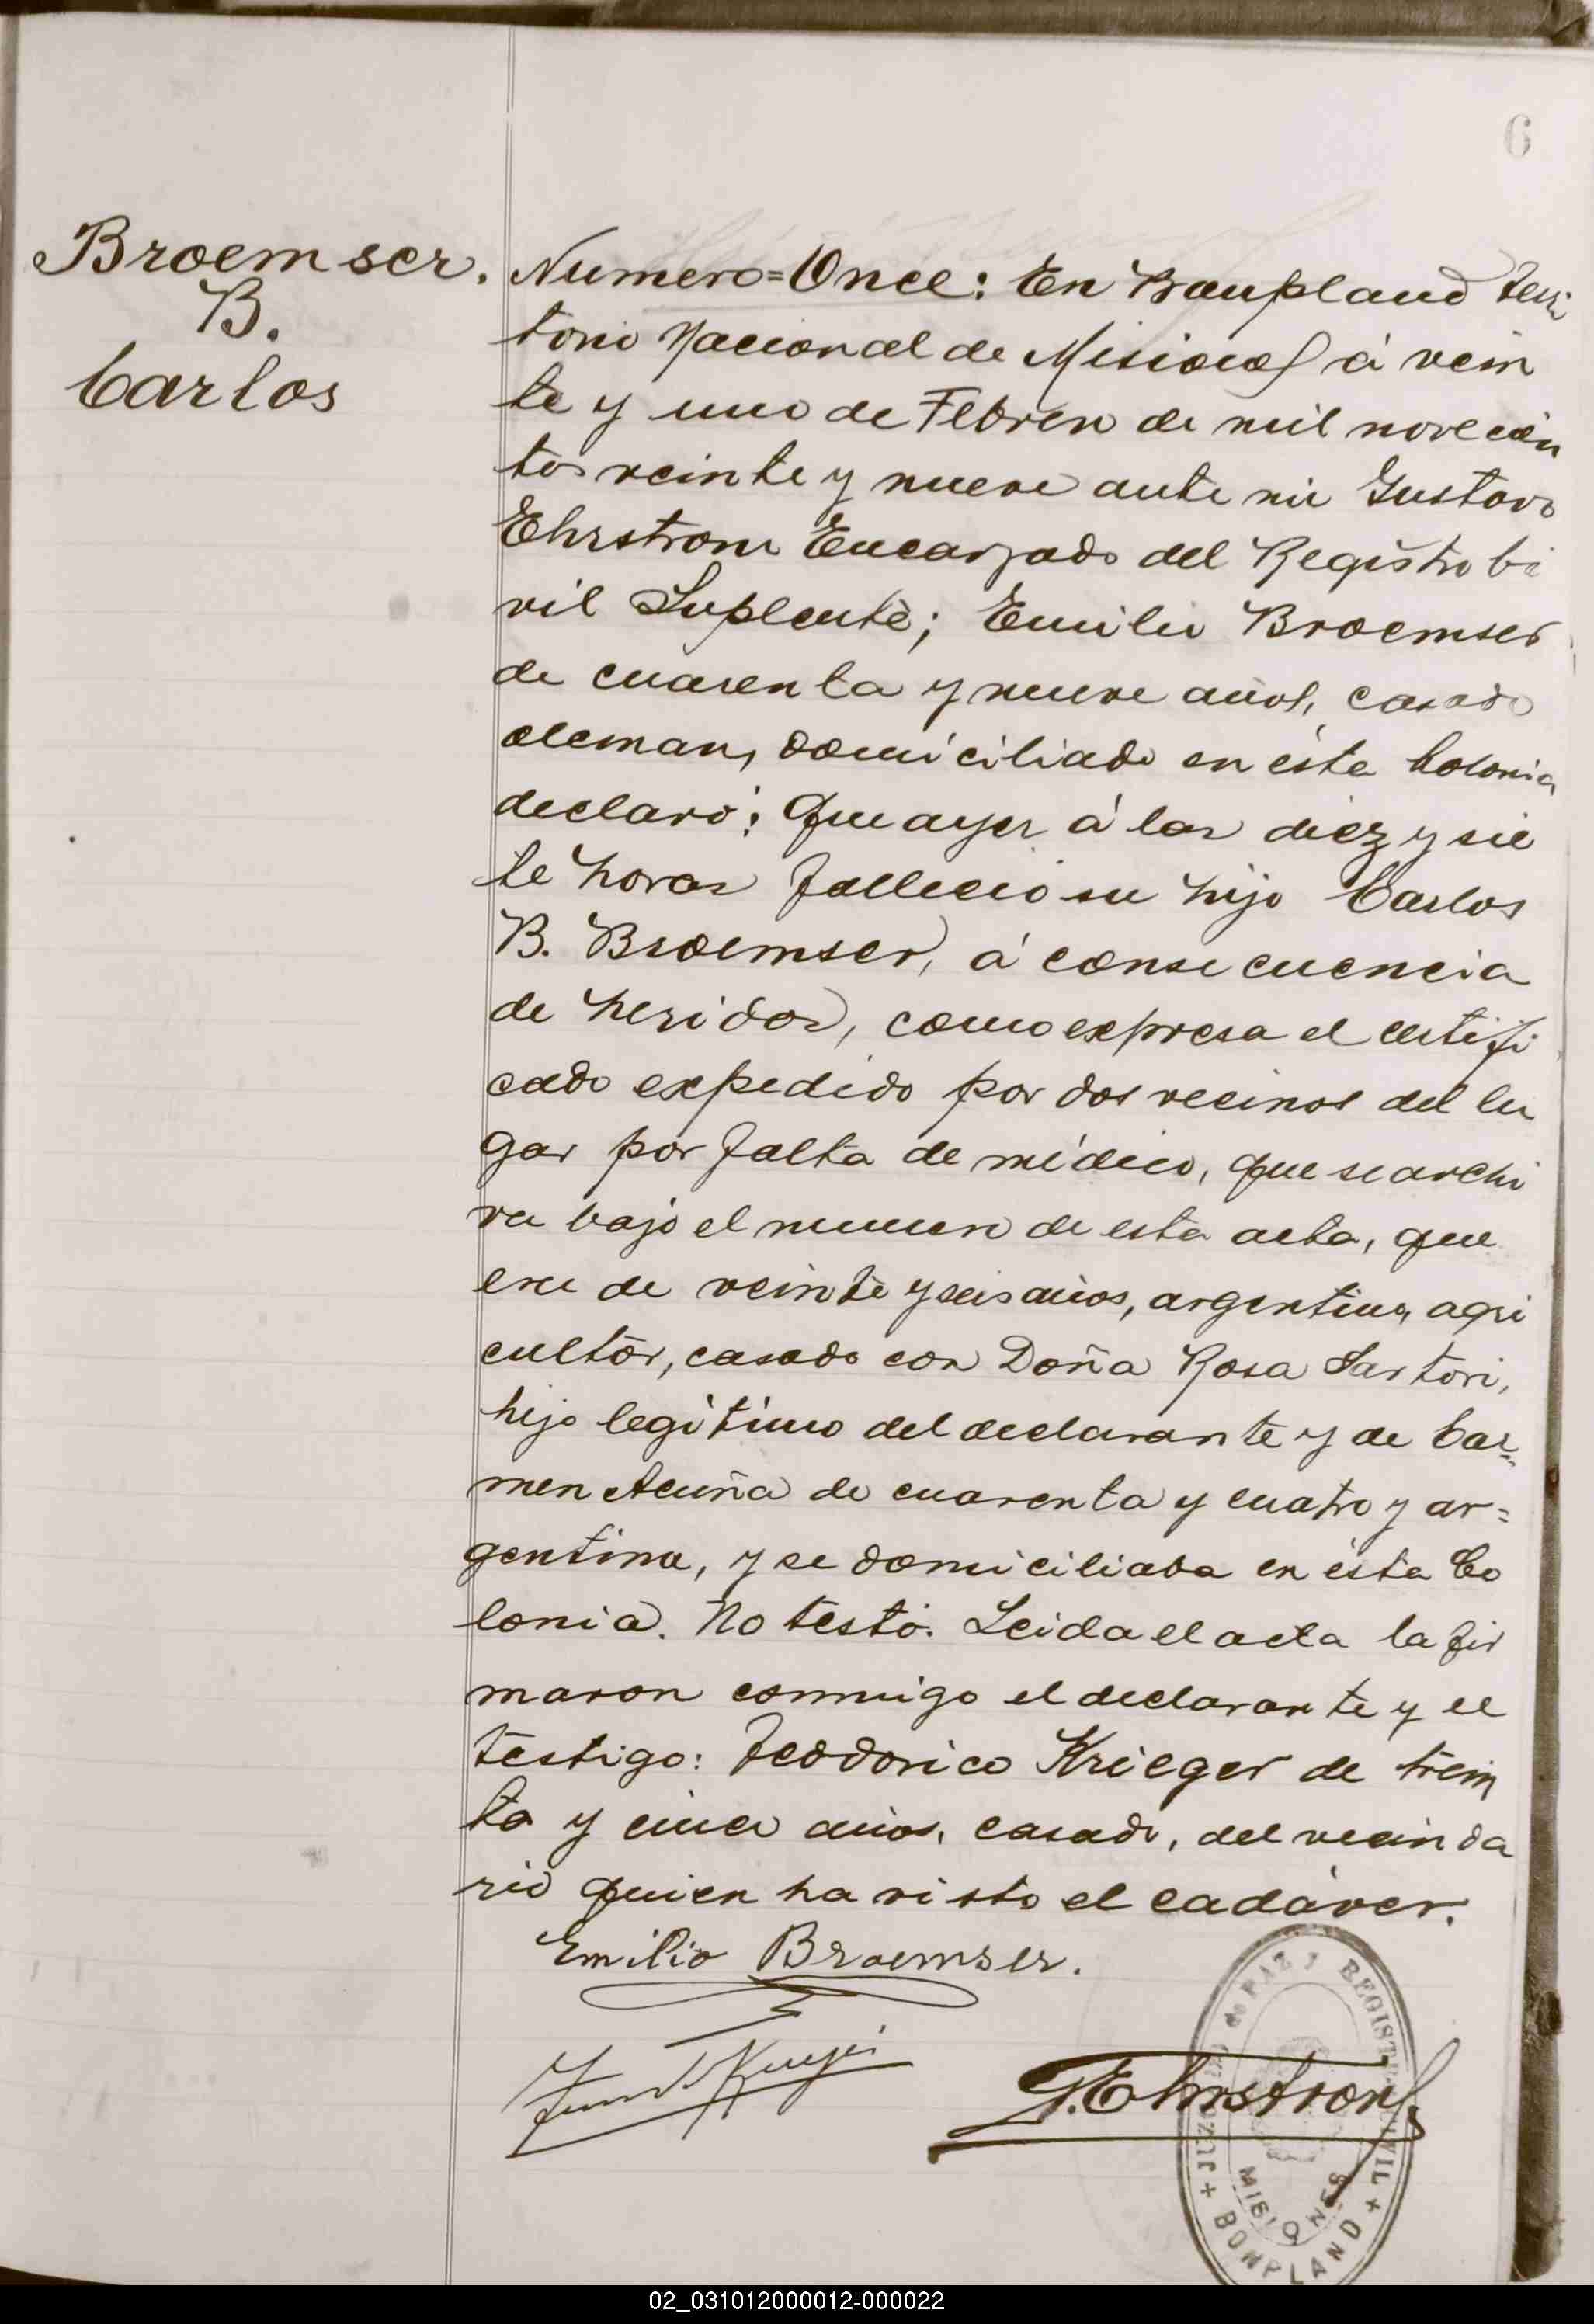 6
Broemser.
B.
Carlos
Numero=Once: En Bonpland Terri
torio Nacional de Misiones á vein
te y uno de Febrero de mil novecien
tos veinte y nueve ante mi Gustavo
Ehrstrom Encargado del Registro Ci
vil Suplente; Emilio Broemser
de cuarenta y nueve años, casado
aleman, domiciliado en ésta Colonia
declaró: Que ayer á las diez y sie
te horas falleció su hijo Carlos
B. Broemser, á consecuencia
de heridas, como expresa el certifi
cado expedido por dos vecinos del lu
gar por falta de médico, que se archi
va bajo el numero de esta acta, que
era de veinte y seis años, argentino, agri
cultor, casado con Doña Rosa Sartori,
hijo legítimo del declarante y de Car=
men Acuña de cuarenta y cuatro y ar=
gentina, y se domiciliaba en ésta Co
lonia. No testó. Leida el acta la fir
maron conmigo el declarante y el
testigo: Teodorico Krieger de trein
ta y cinco años, casado, del vecinda
rio quien ha visto el cadáver.
Emilio Broemser.
G. Ehrstrom
JUZGADO de PAZ Y REGISTRO CIVIL
MISIONES
+ BONPLAND +
02_031012000012-000022